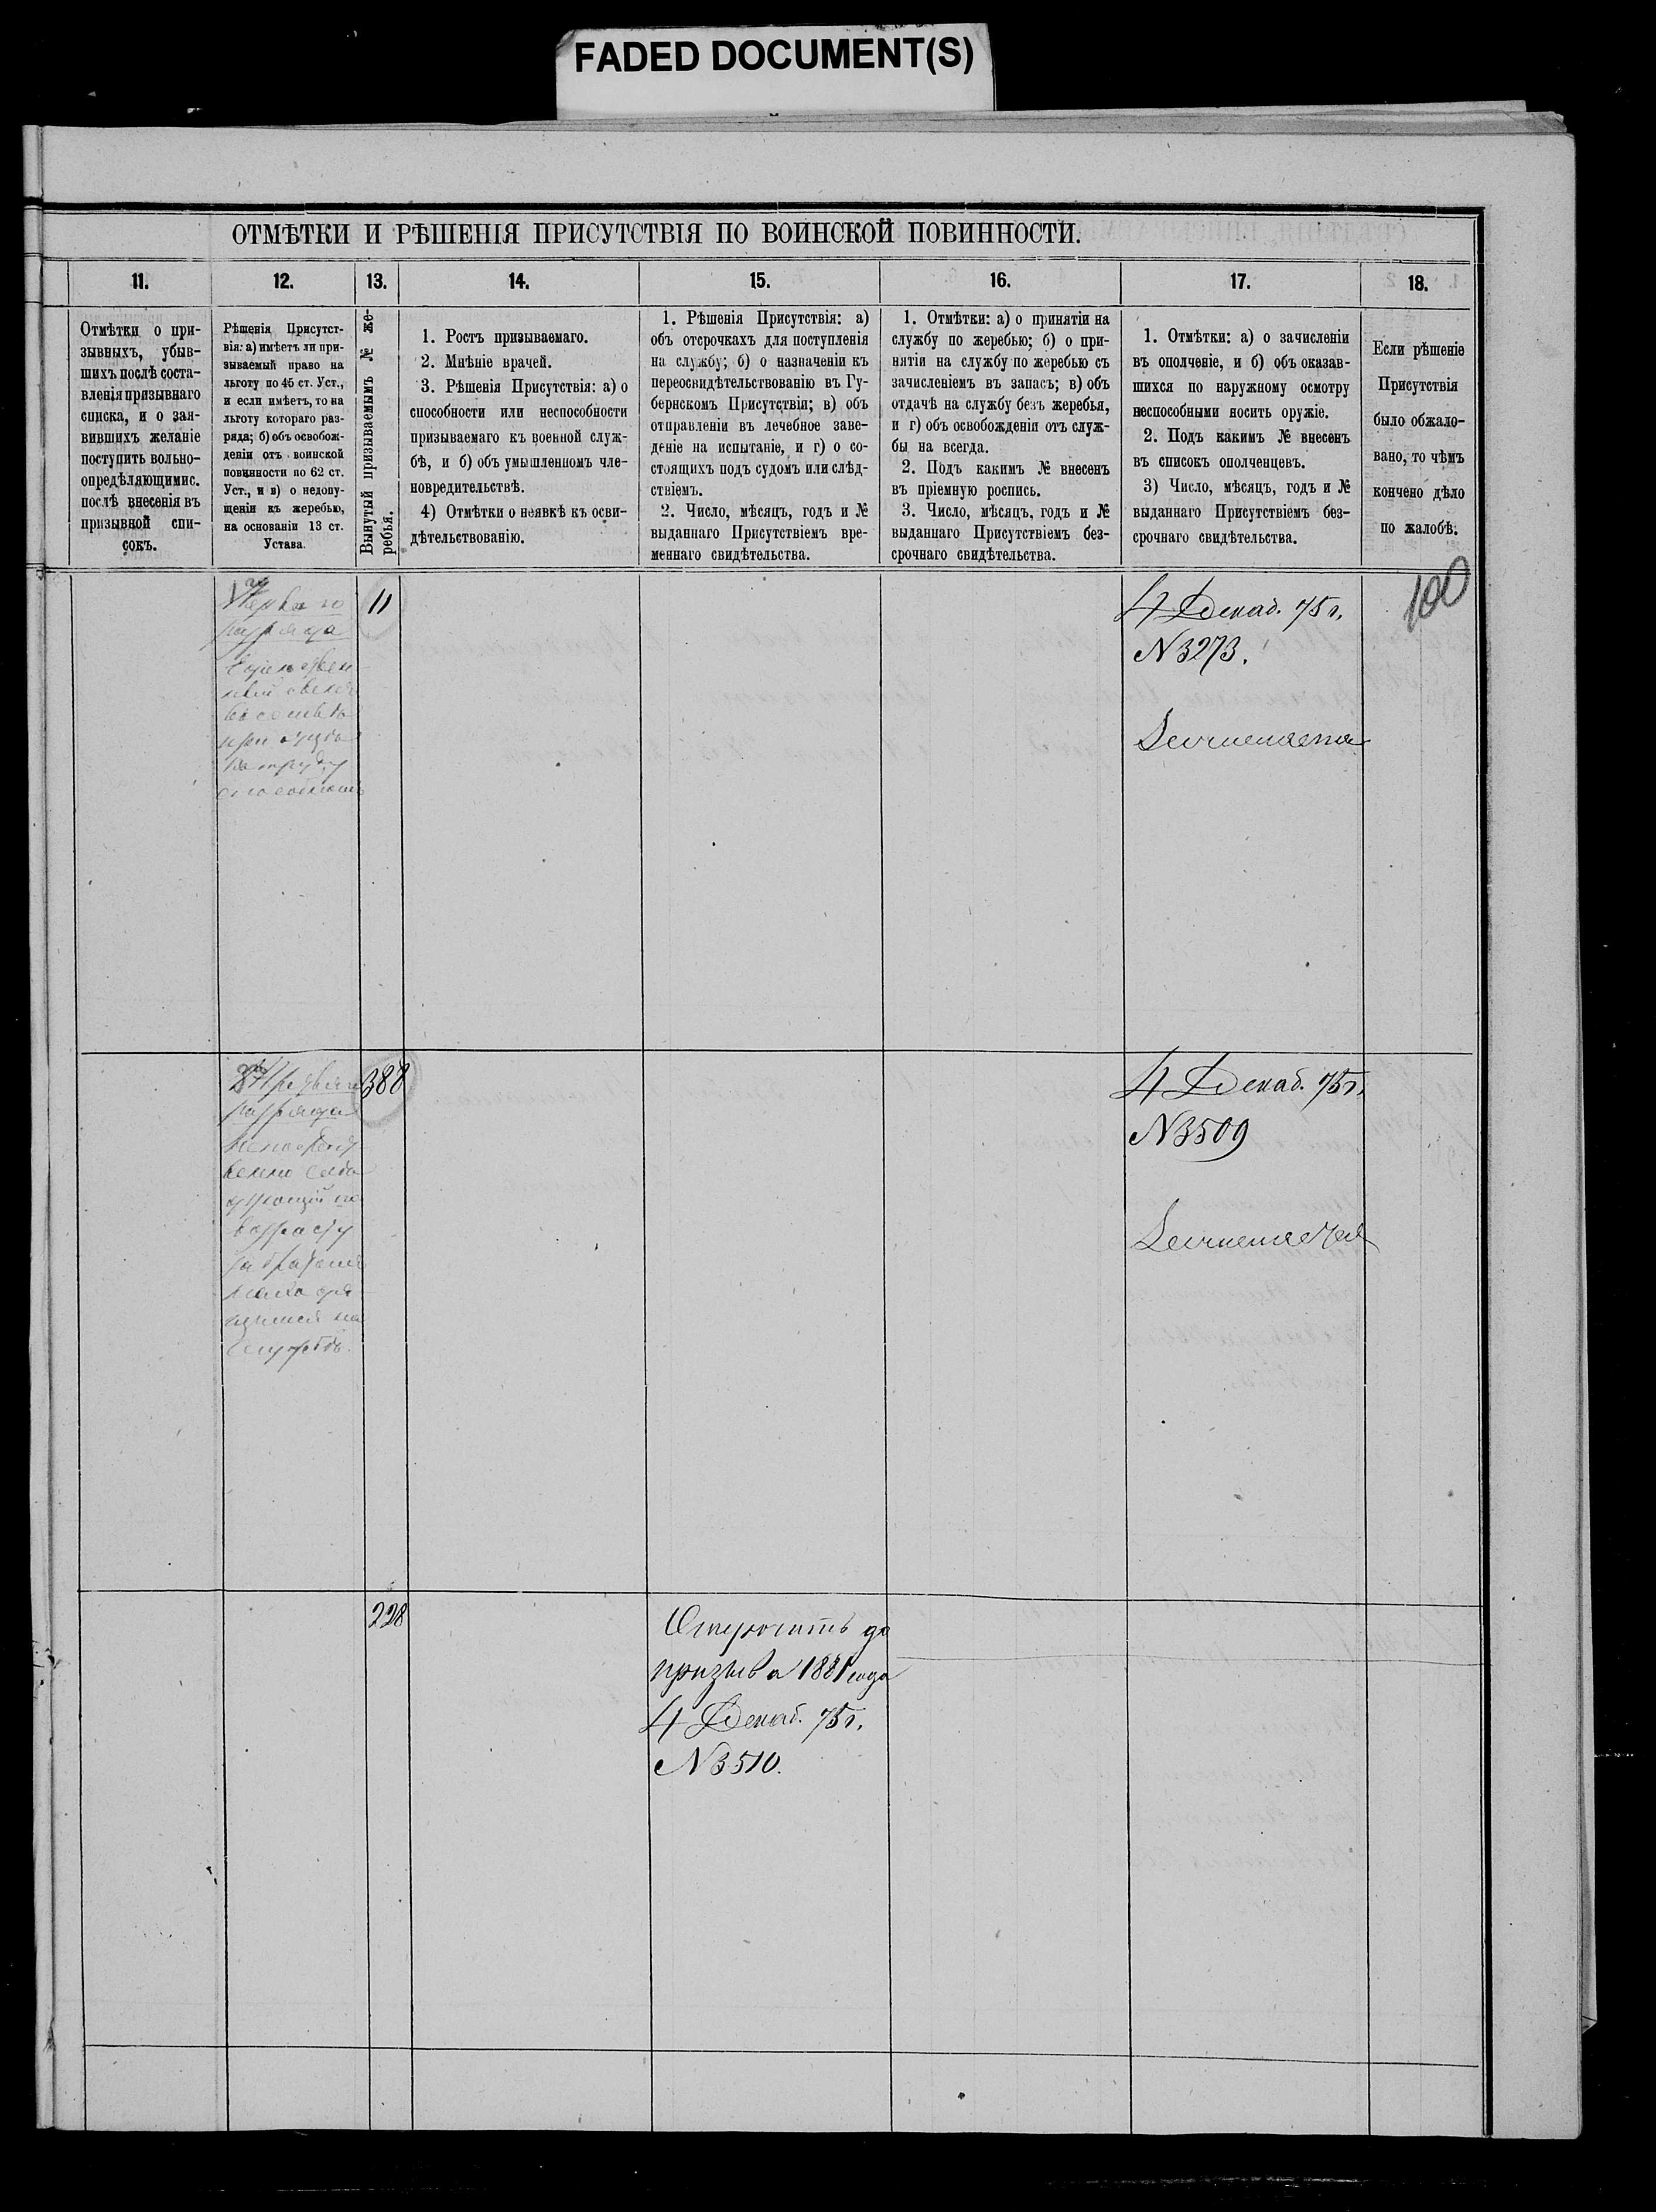 FADED DOCUMENT(S)
ОТМѢТКИ И РѢШЕНІЯ ПРИСУТСТВІЯ ПО ВОИНСКОЙ ПОВИННОСТИ.
11.
12.
13.
14.
15.
16.
17.
18.
Отмѣтки о при-
зывныхъ, убыв-
шихъ послѣ соста-
вленія призывнаго
списка, и о зая-
вившихъ желаніе
поступить вольно-
опредѣляющимис.
послѣ внесенія въ
призывной спи-
сокъ.
Рѣшенія Присутст-
вія: а) имѣетъ ли при-
зываемый право на
льготу по 45 ст. Уст.,
и если имѣетъ, то на
льготу котораго раз-
ряда; б) объ освобож-
деніи отъ воинской
повинности по 62 ст.
Уст., и в) о недопу-
щеніи къ жеребью,
на основаніи 13 ст.
Устава.
Вынутый призываемымъ № же-
ребья.
1. Ростъ призываемаго.
2. Мнѣніе врачей.
3. Рѣшенія Присутствія: а) о
способности или неспособности
призываемаго къ военной служ-
бѣ, и б) объ умышленномъ чле-
новредительствѣ.
4) Отмѣтки о неявкѣ къ осви-
дѣтельствованію.
1. Рѣшенія Присутствія: а)
объ отсрочкахъ для поступленія
на службу; б) о назначеніи къ
переосвидѣтельствованію въ Гу-
бернскомъ Присутствіи; в) объ
отправленіи въ лечебное заве-
деніе на испытаніе, и г) о со-
стоящихъ подъ судомъ или слѣд-
ствіемъ.
2. Число, мѣсяцъ, годъ и №
выданнаго Присутствіемъ вре-
меннаго свидѣтельства.
1. Отмѣтки: а) о принятіи на
службу по жеребью; б) о при-
нятіи на службу по жеребью съ
зачисленіемъ въ запасъ; в) объ
отдачѣ на службу безъ жеребья,
и г) объ освобожденіи отъ служ-
бы на всегда.
2. Подъ какимъ № внесенъ
въ пріемную роспись.
3. Число, мѣсяцъ, годъ и №
выданнаго Присутствіемъ без-
срочнаго свидѣтельства.
1. Отмѣтки: а) о зачисленіи
въ ополченіе, и б) объ оказав-
шихся по наружному осмотру
неспособными носить оружіе.
2. Подъ какимъ № внесенъ
въ списокъ ополченцевъ.
3) Число, мѣсяцъ, годъ и №
выданнаго Присутствіемъ без-
срочнаго свидѣтельства.
Если рѣшеніе
Присутствія
было обжало-
вано, то чѣмъ
кончено дѣло
по жалобѣ.
100
Перваго
разряда
Единствен
ный
въ семьѣ
при отцѣ
къ труду
11
4 Декаб. 75 г.
N 3273.
разряда
Непосредст
венно слѣдо
ующій по
возрасту
за братомъ
находя
щимся на
службѣ.
388
4 Декаб. 75 г.
N 3509
228
Отсрочить до
призыва 1881 года
4 Декаб. 75 г.
N 3510.